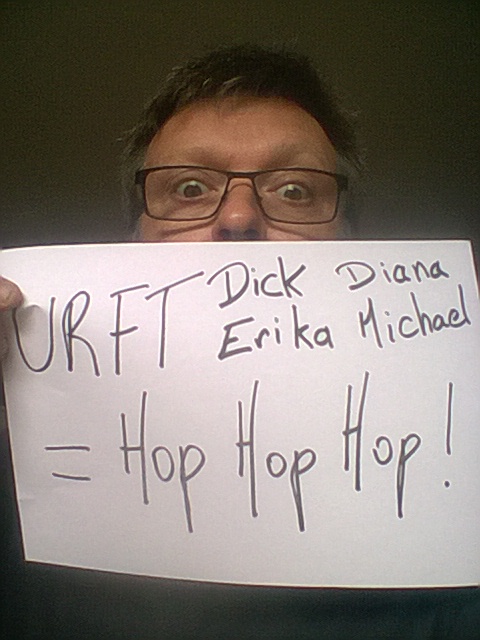 URFT Dick Diana
Erika Michael
= Hop Hop Hop!